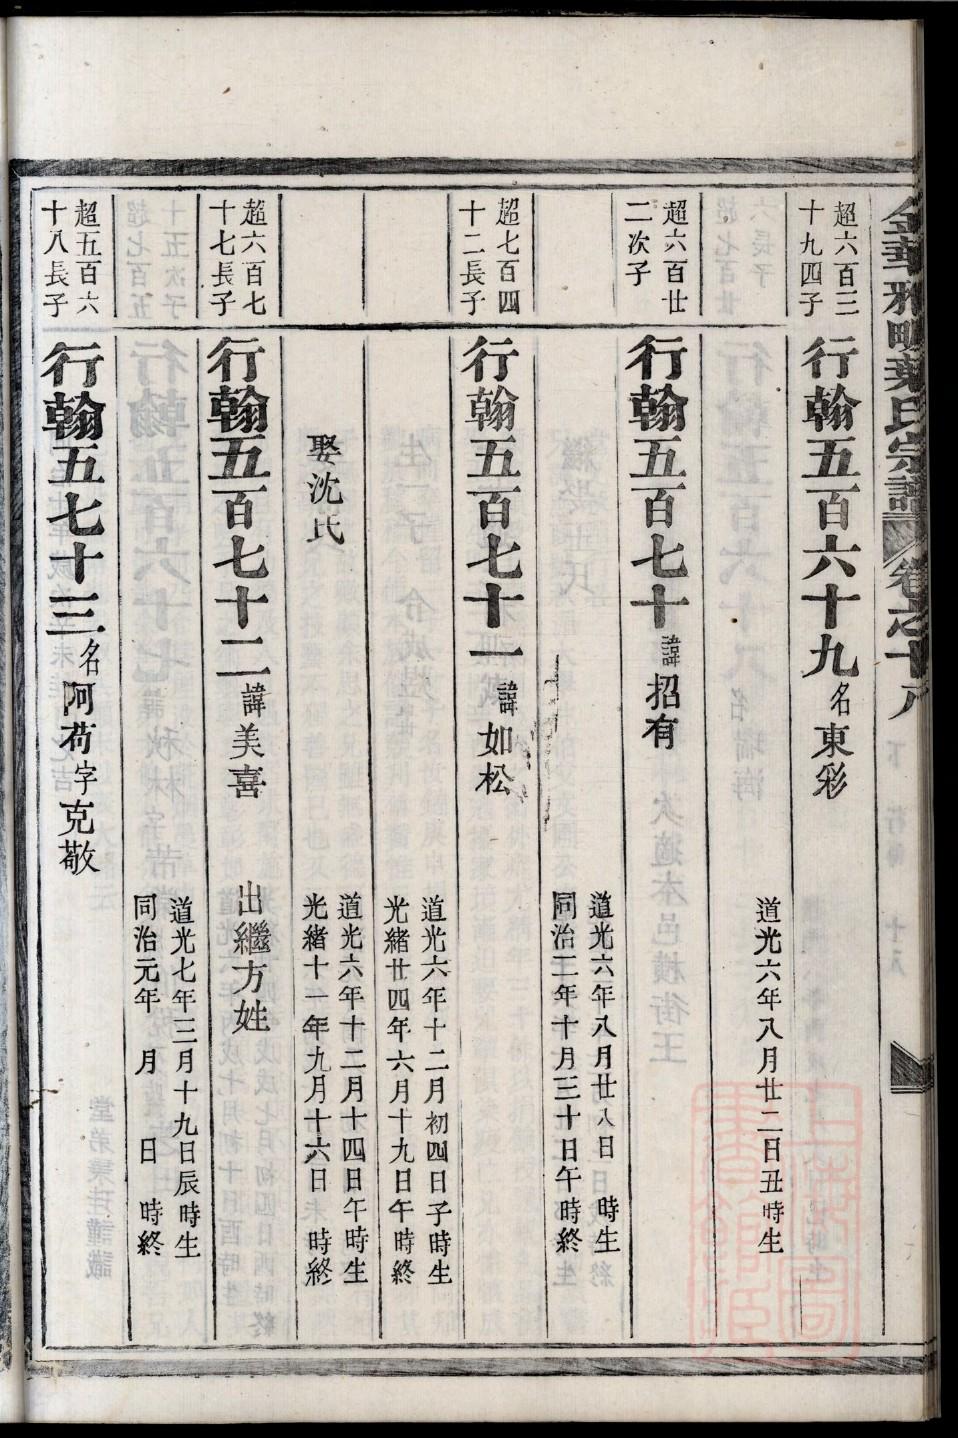 金華雅畈葉氏宗譜 卷之十八
超六百三
十九四子
行翰五百六十九 名東彩
道光六年八月廿二日丑時生
超六百廿
二次子
行翰五百七十 諱招有
道光六年八月廿八日 時生
同治三年十月三十日午時終
超七百四
十二長子
行翰五百七十一 諱如松
道光六年十二月初四日子時生
光緒廿四年六月十九日午時終
娶沈氏
道光六年十二月十四日午時生
光緒十一年九月十六日 時終
超六百七
十七長子
行翰五百七十二 諱美喜
出繼方姓
道光七年三月十九日辰時生
同治元年 月 日 時終
超五百六
十八長子
行翰五七十三 名阿苟字克敬